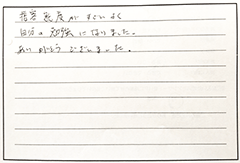 接客態度がすごいよく
自分の勉強になりました。
ありがとうございました。